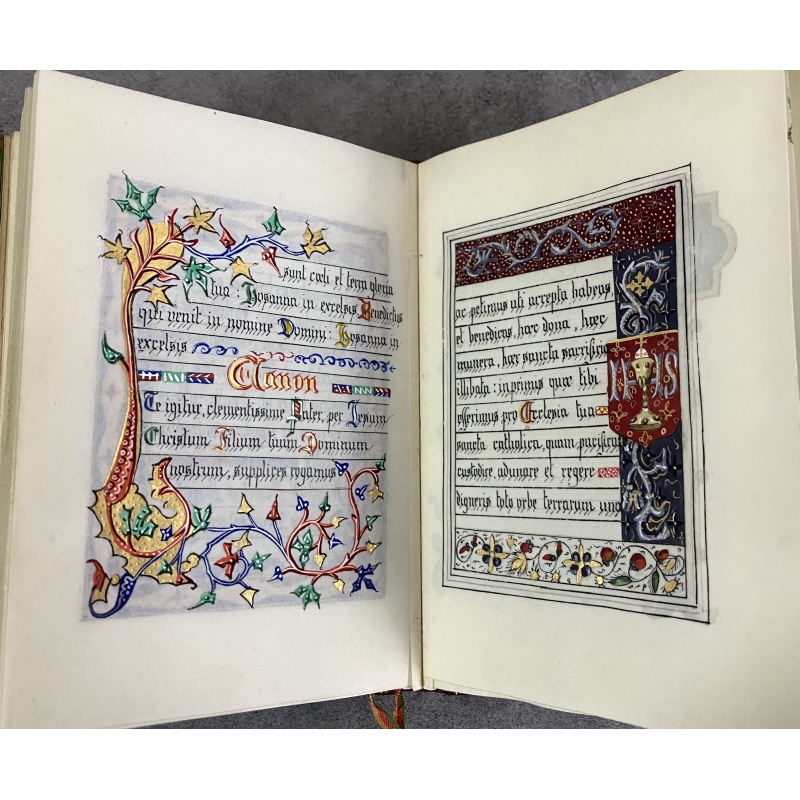 sunt cœli et terra gloria
tua : Hosanna in excelsis Benedictus
qui venit in nomine Domini : Hosanna in
excelsis
Canon
Te igitur, clementissime Pater, per Jesum
Christum Filium tuum Dominum
nostrum, supplices rogamus
ac petimus uti accepta habeas,
et benedicas, hæc dona, hæc
munera, hæc sancta sacrificia
illibata : inprimis quæ tibi
offerimus pro Ecclesia tua
sancta catholica, quam pacificare
custodire, adunare et regere
digneris toto orbe terrarum, una
IHS